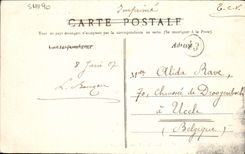 SM1190
Imprimé
E.C.V.
CARTE POSTALE
Tous les pays étrangers n'acceptent pas la correspondance au verso (Se renseigner à la Poste)
Correspondance
Adresse
8 Juin 07
Mlle Alida Rave
70, Chaussée de Droogenbosch
à Uccle
(Belgique)